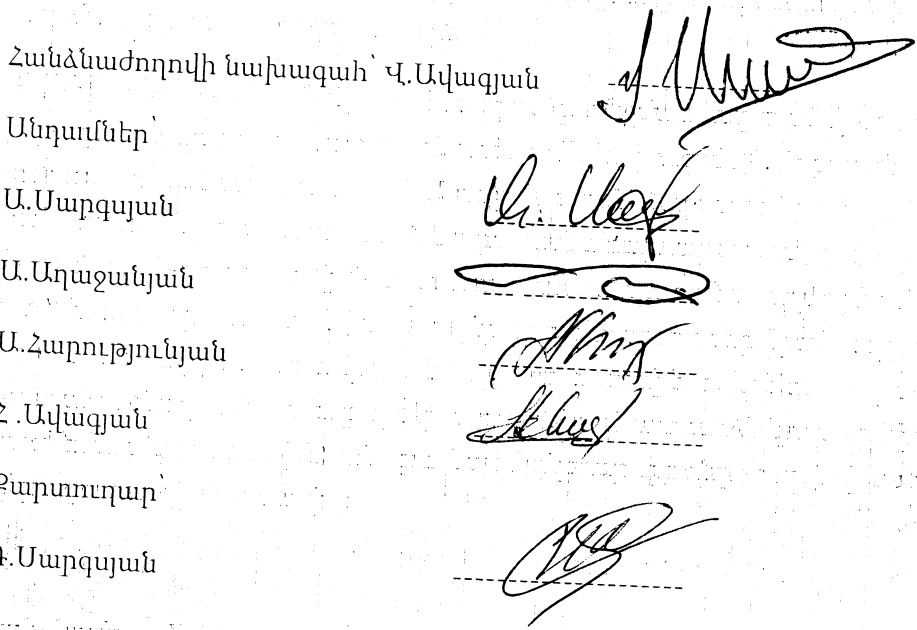 Հանձնաժողովի նախագահ՝ Վ.Ավագյան
Անդամներ՝
Ա.Սարգսյան
Ա.Աղաջանյան
Ա.Հարությունյան
Հ .Ավագյան
Քարտուղար՝
Սարգսյան